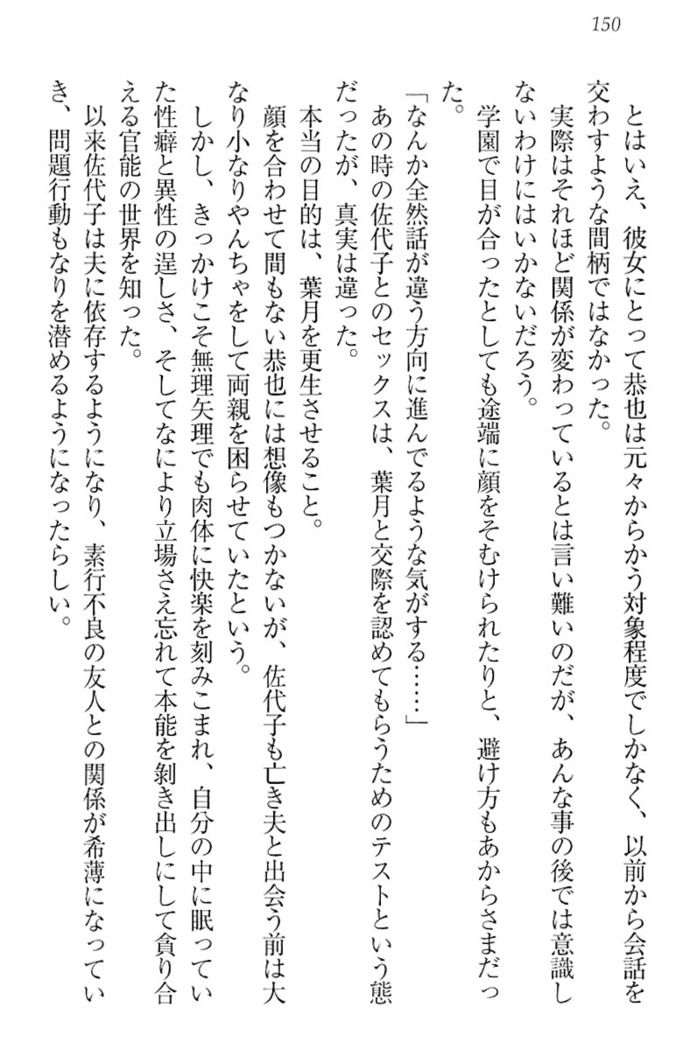 150
とはいえ、彼女にとって恭也は元々からかう対象程度でしかなく、以前から会話を
交わすような間柄ではなかった。
実際はそれほど関係が変わっているとは言い難いのだが、あんな事の後では意識し
ないわけにはいかないだろう。
学園で目が合ったとしても途端に顔をそむけられたりと、避け方もあからさまだっ
た。
「なんか全然話が違う方向に進んでるような気がする……」
あの時の佐代子とのセックスは、葉月と交際を認めてもらうためのテストという態
だったが、真実は違った。
本当の目的は、葉月を更生させること。
顔を合わせて間もない恭也には想像もつかないが、佐代子も亡き夫と出会う前は大
なり小なりやんちゃをして両親を困らせていたという。
しかし、きっかけこそ無理矢理でも肉体に快楽を刻みこまれ、自分の中に眠ってい
た性癖と異性の逞しさ、そしてなにより立場さえ忘れて本能を剝き出しにして貪り合
える官能の世界を知った。
以来佐代子は夫に依存するようになり、素行不良の友人との関係が希薄になってい
き、問題行動もなりを潜めるようになったらしい。